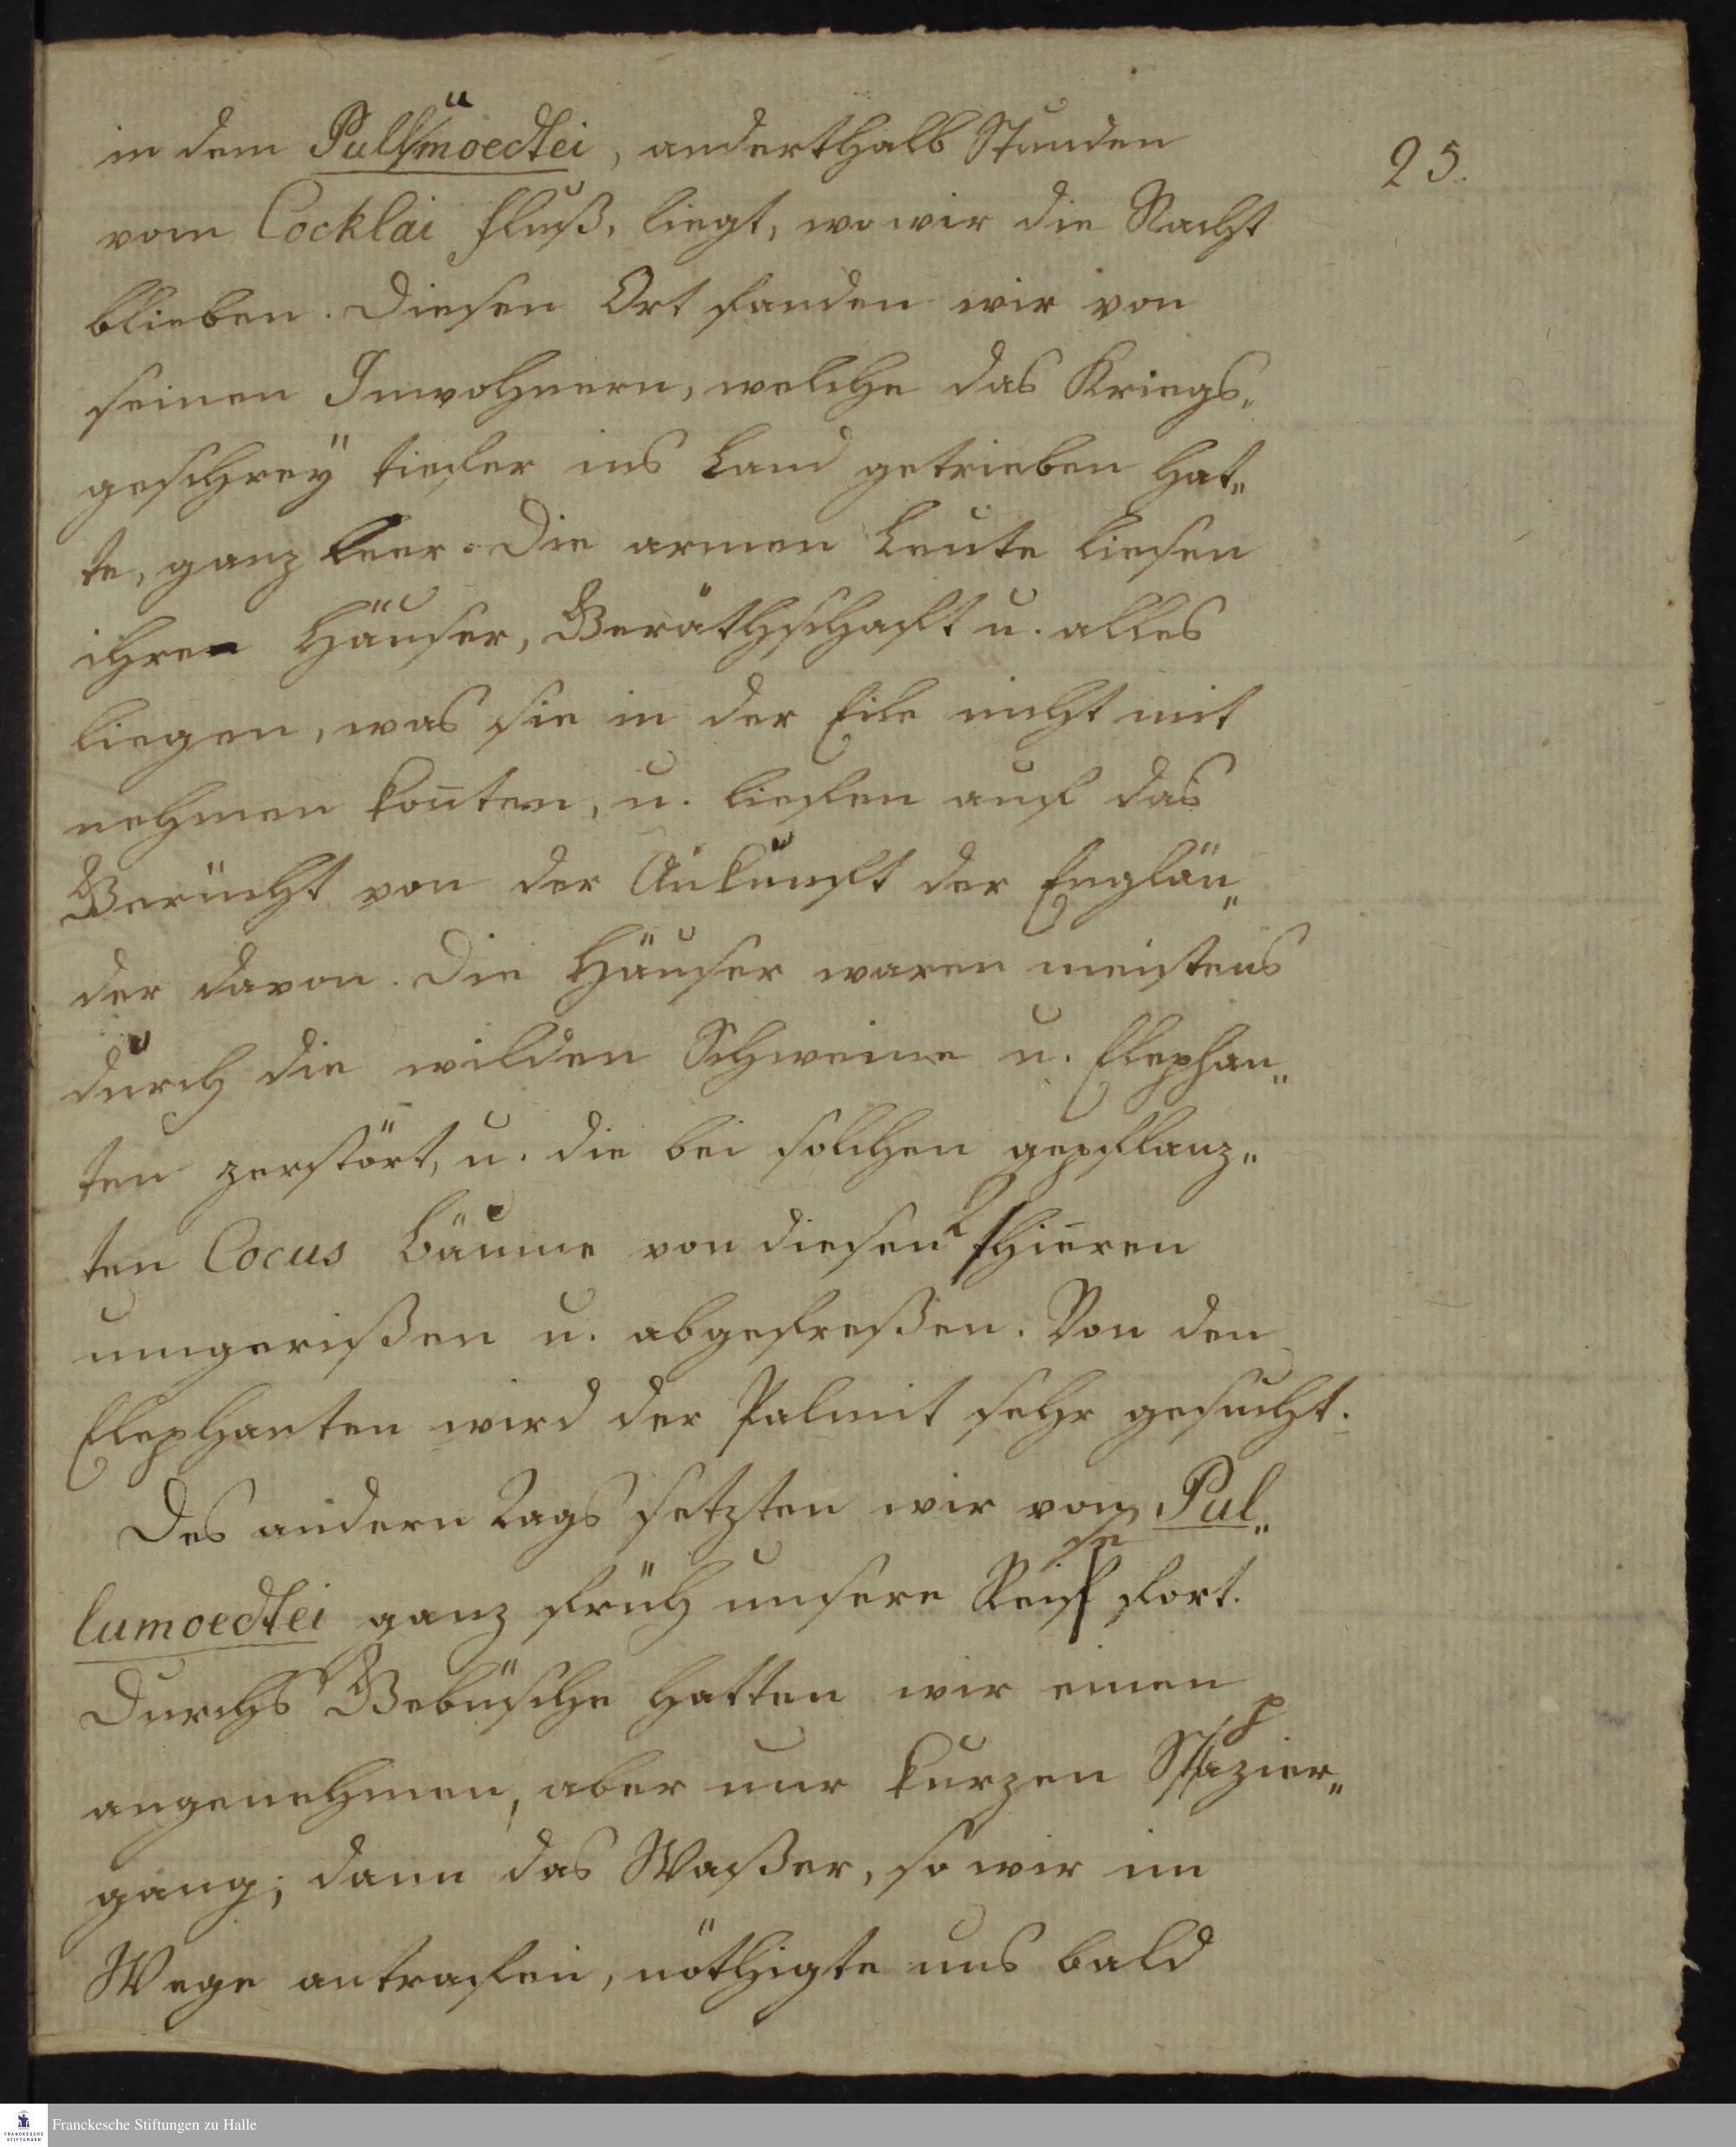 in dem Pullumoedtei, anderthalb Stunden
25.
vom Cocklai fluß, liegt, wo wir die Nacht
blieben. Diesen Ort fanden wir von
seinen Inwohnern, welche das Kriegs„
geschrey tiefer ins Land getrieben hat„
te, ganz leer. Die armen Leute liesen
ihre Häuser, Geräthschaft u. alles
liegen, was sie in der Eile nicht mit
nehmen kon̄ten, u. liefen auf das
Gerücht von der Ankunft der Englän„
der davon. Die Häuser waren meistens
durch die wilden Schweine u. Elephan„
ten zerstört, u. die bei solchen gepflanz„
ten Cocus bäume von diesen Thieren
umgerißen u. abgefreßen. Von den
Elephanten wird der Palmit sehr gesucht.
Des andern Tags setzten wir von Pul„
lumoedtei ganz früh unsere Reise fort.
Durchs Gebüsche hatten wir einen
angenehmen, aber nur kurzen Spazier„
gang; dann das Waßer, so wir im
Wege antrafen, nöthigte uns bald
Franckesche Stiftungen zu Halle
FRANCKESCHE
STIFTUNGEN